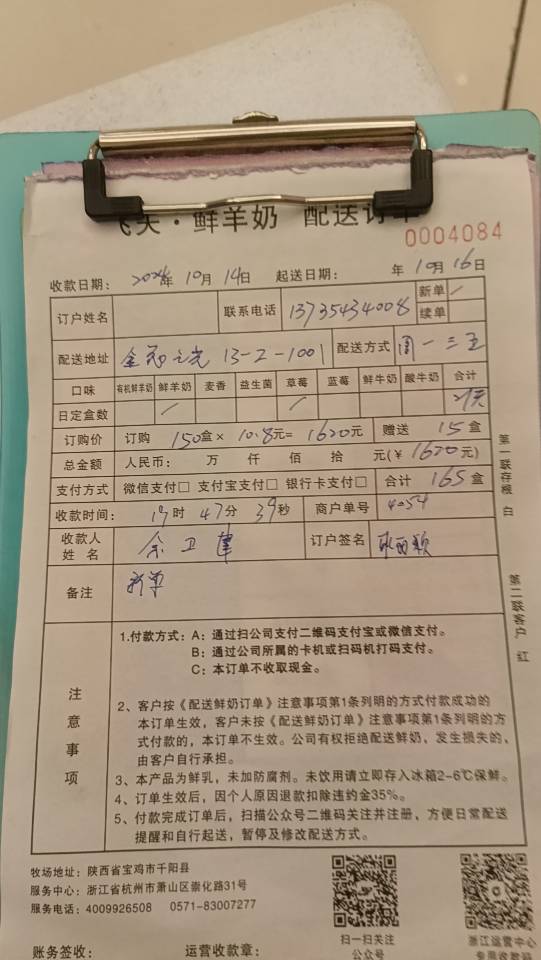 飞天·鲜羊奶 配送订单
0004084
收款日期： 2024年 10月 14日 起送日期： 年 10月 16日
订户姓名 联系电话 13735434008 新单 /
续单
配送地址 13-2-1001 配送方式 周一三五
口味 有机鲜羊奶 鲜羊奶 麦香 益生菌 草莓 蓝莓 鲜牛奶 酸牛奶 合计
日定盒数 / /
订购价 订购 150盒× 10.8元= 1620元 赠送 15盒
总金额 人民币： 万 仟 佰 拾 元(￥1620元)
支付方式 微信支付□ 支付宝支付□ 银行卡支付□ 合计 165盒
收款时间： 17时 47分 39秒 商户单号 4054
收款人姓名 余卫建 订户签名
备注 新单
第一联存根 白
第二联客户 红
注意事项
1.付款方式：A：通过扫公司支付二维码支付宝或微信支付。
B：通过公司所属的卡机或扫码机打码支付。
C：本订单不收取现金。
2、客户按《配送鲜奶订单》注意事项第1条列明的方式付款成功的
本订单生效，客户未按《配送鲜奶订单》注意事项第1条列明的方
式付款的，本订单不生效。公司有权拒绝配送鲜奶，发生损失的，
由客户自行承担。
3、本产品为鲜乳，未加防腐剂。未饮用请立即存入冰箱2-6℃保鲜。
4、订单生效后，因个人原因退款扣除违约金35%。
5、付款完成订单后，扫描公众号二维码关注并注册，方便日常配送
提醒和自行起送，暂停及修改配送方式。
牧场地址：陕西省宝鸡市千阳县
服务中心：浙江省杭州市萧山区崇化路31号
服务电话：4009926508 0571-83007277
扫一扫关注
公众号
浙江运营中心
专用收款码
账务签收： 运营收款章：